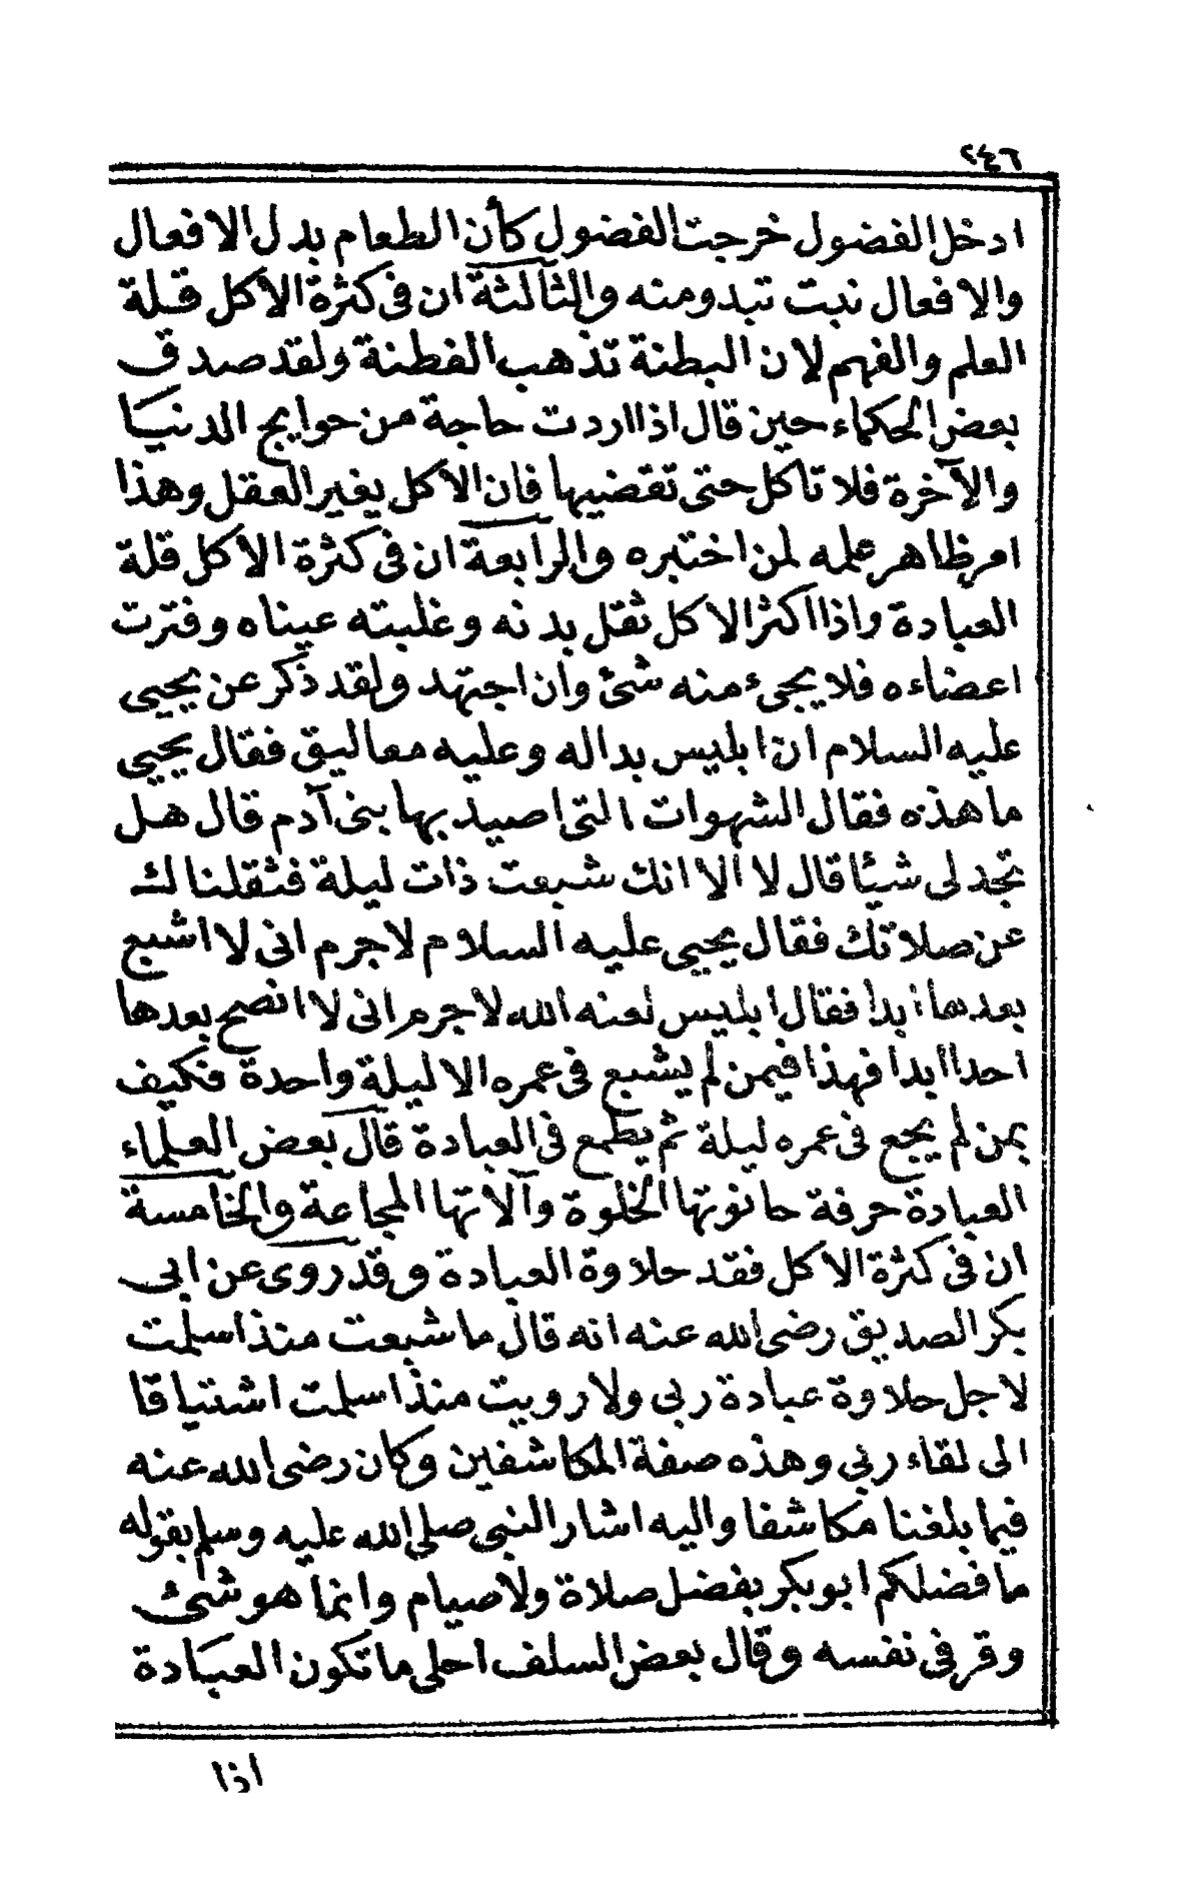 ٢٤٦
ادخل الفضول خرجت الفضول كأن الطعام بدل الافعال
والافعال نبت تبدو منه والثالثة ان فى كثرة الاكل قلة
العلم والفهم لان البطنة تذهب الفطنة ولقد صدق
بعض الحكماء حين قال اذا اردت حاجة من حوايج الدنيا
والآخرة فلا تاكل حتى تقضيها فان الاكل يغير العقل وهذا
امر ظاهر علمه لمن اختبره والرابعة ان فى كثرة الاكل قلة
العبادة واذا اكثر الاكل ثقل بدنه وغلبته عيناه وفترت
اعضاءه فلا يجىء منه شئ وان اجتهد ولقد ذكر عن يحيى
عليه السلام ان ابليس بدا له وعليه معاليق فقال يحيى
ما هذه فقال الشهوات التى اصيد بها بنى آدم قال هل
تجد لى شيئا قال لا الا انك شبعت ذات ليلة فثقلنا لك
عن صلاتك فقال يحيى عليه السلام لا جرم انى لا اشبع
بعدها ابدا فقال ابليس لعنه الله لا جرم انى لا انصح بعدها
احدا ابدا فهذا فيمن لم يشبع فى عمره الا ليلة واحدة فكيف
بمن لم يجع فى عمره ليلة ثم يطمع فى العبادة قال بعض العلماء
العبادة حرفة حانوتها الخلوة وآلاتها المجاعة والخامسة
ان فى كثرة الاكل فقد حلاوة العبادة وقد روى عن ابى
بكر الصديق رضى الله عنه انه قال ما شبعت منذ اسلمت
لاجل حلاوة عبادة ربى ولا رويت منذ اسلمت اشتياقا
الى لقاء ربى وهذه صفة المكاشفين وكان رضى الله عنه
فيما بلغنا مكاشفا واليه اشار النبى صلى الله عليه وسلم بقوله
ما فضلكم ابو بكر بفضل صلاة ولا صيام وانما هو شئ
وقر فى نفسه وقال بعض السلف احلى ما تكون العبادة
اذا